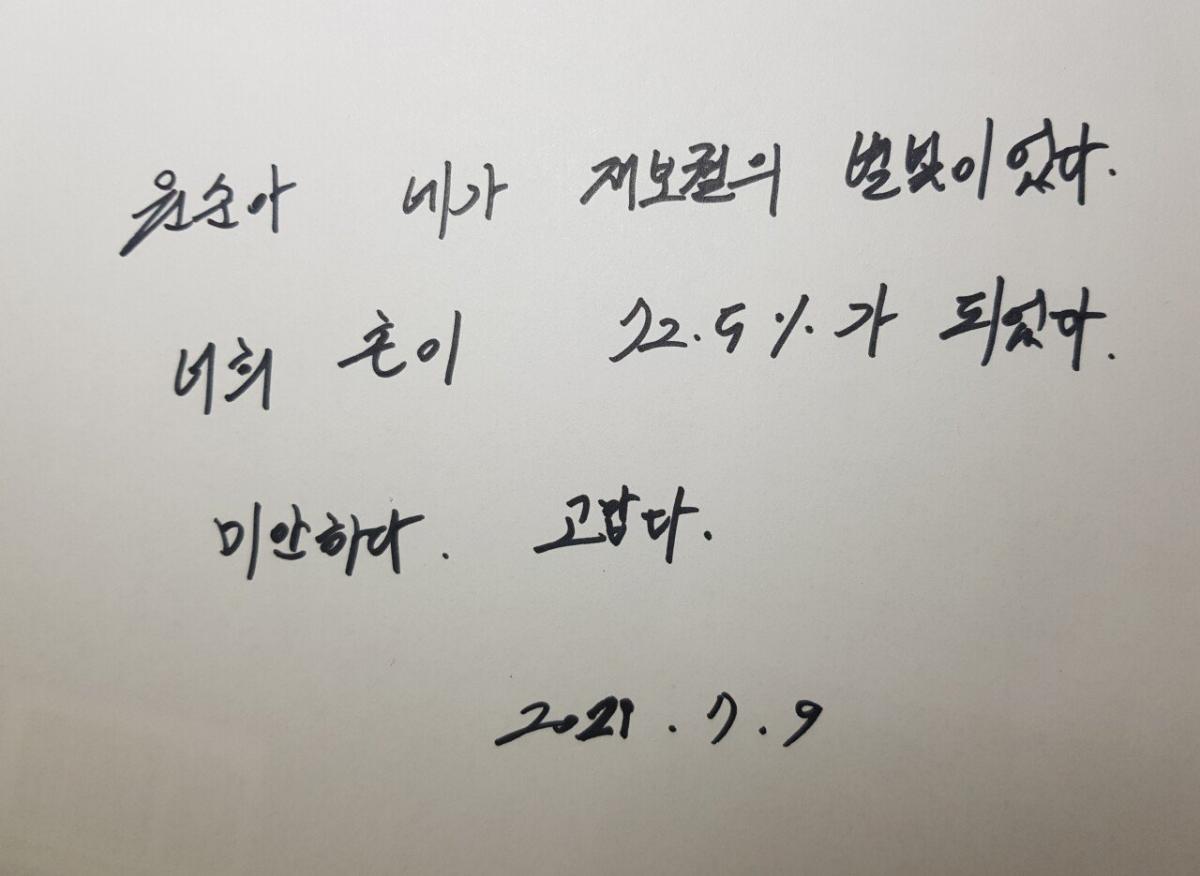 원순아 네가 재보궐의 별빛이었다.
너희 혼이 72.5%가 되었다.
미안하다. 고맙다.
2021.7.9